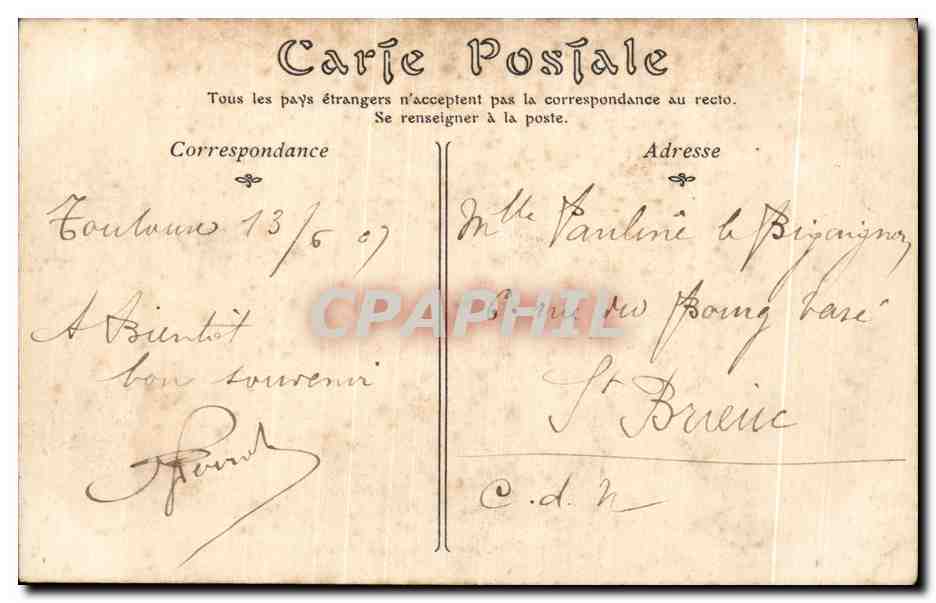 Carte Postale
Tous les pays étrangers n'acceptent pas la correspondance au recto.
Se renseigner à la poste.
Correspondance
Toulouse 13/6 07
A Bientôt
bon souvenir
Adresse
Mlle Pauline le
rue du Bourg vasé
St Brieuc
C. d. N
CPAPHIL